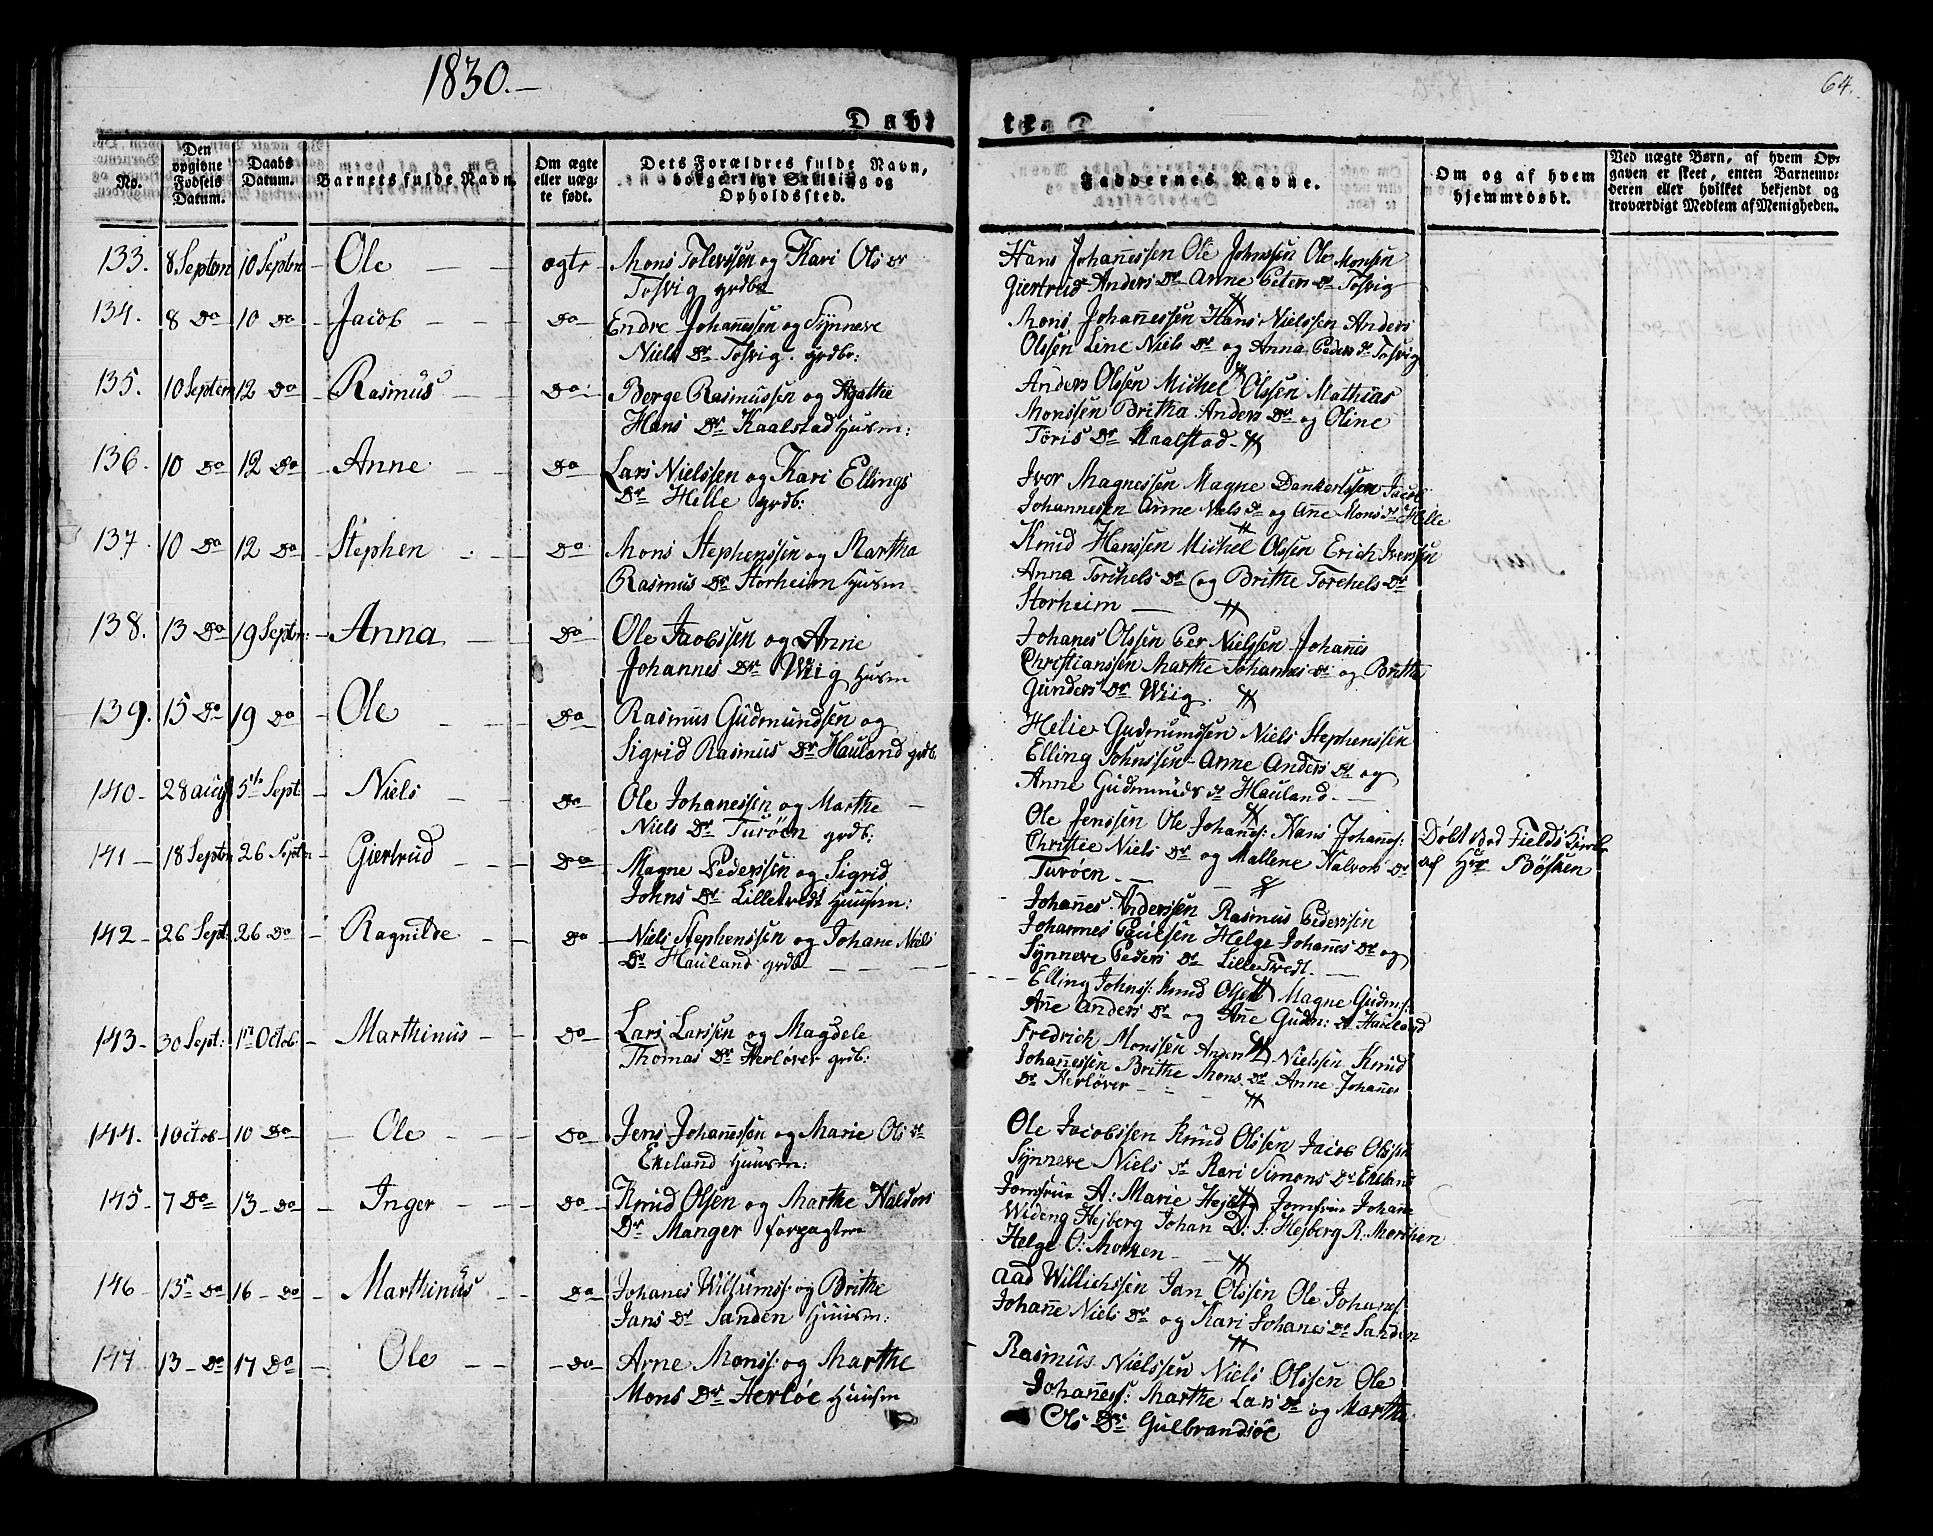 1830.
64.
Døbte
No.
Den opgivne Fødsels Datum.
Daabs Datum.
Barnets fulde Navn.
Om ægte eller uægte født.
Dets Forældres fulde Navn, borgerlige Stilling og Opholdssted.
Faddernes Navne.
Om og af hvem hjemmedøbt.
Ved uægte Børn, af hvem Opgaven er skeet, enten Barnemoderen eller hvilket bekjendt og troværdigt Medlem af Menigheden.
133. 8 Septbr 10 Septbr Ole ægte Mons Tolerssen og Kari Ols Dr
Tosvig grdbr
Hans Johañessen Ole Johnssen Ole Monsen
Giertrud Anders Dr Anne Peters Dr Tosvig
134. 8 Do 10 Do Jacob Do Endre Johañessen og Synneve
Niels Dr Tosvig grdbr:
Mons Johañessen Hans Nielssen Anders
Olssen Line Niels Dr og Anna Peders Dr Tosvig
135. 10 Septem 12 Do Rasmus Do Berge Rasmussen og Agathe
Hans Dr Kaalstad Husm:
Anders Olssen Michel Olssen Mathias
Monssen Britha Anders Dr og Oline
Toris Dr Kaalstad
136. 10 Do 12 Do Anne Do Lars Nielssen og Kari Ellings
Dr Helle grdb:
Iver Magnessen Magne Dankertssen Jacob
Johannessen Anne Niels Dr og Añe Mons Dr Helle
137. 10 Do 12 Do Stephen Do Mons Stephenssen og Martha
Rasmus Dr Storheim Husm
Knud Hanssen Michel Olssen Erich Iverssen
Anna Torchels Dr og Brithe Torchels Dr
Storheim
138. 13 Do 19 Septbr: Anna Do Ole Jacobssen og Anne
Johannes Dr Wiig Husm
Johanes Olssen Per Nielssen Johañes
Christianssen Marthe Johannes Dr og Brithe
Gunders Dr Wiig
139. 15 Do 19 Do Ole Do Rasmus Gudmundsen og
Sigrid Rasmus Dr Hauland grdb.
Helie Gudmundssen Niels Stephenssen
Elling Johnssen Anne Anders Dr og
Anne Gudmunds Dr Hauland
140 28 aug 5te Sept. Niels Do Ole Johanessen og Marthe
Niels Dr Turöen grdb:
Ole Jenssen Ole Johanes: Hans Johañes:
Christie Niels Dr og Mallene Halvors Dr
Turöen
Døbt ved Fields Kirke
af Hr Bösken
141 18 Septbr 26 Septbr Giertrud Do Magne Pederssen og Sigrid
Johns Dr Lilletvedt Huusm:
Johañes Anderssen Rasmus Pederssen
Johannes Poulsen Helge Johañes Dr og
Synneve Peders Dr Lille Tvedt
142 26 Sept: 26 Do Ragnilde Do Niels Stephenssen og Johane Niels
Dr Hauland grdb
Elling Johnss: Knud Olssen Magne Gudms:
Añe Anders Dr og Añe Gudm: Dr Hauland
143 30 Sept: 1te Octob: Marthinus Do Lars Larssen og Magdele
Thomas Dr Herløver grdb:
Fredrich Monssen Anders Nielssen Knud
Johañessen Brithe Mons Dr Anne Johañes
Dr Herløver
144. 1 Octob 10 Do Ole Do Jens Johanessen og Marie Ols Dr
Ekeland Huusm:
Ole Jacobssen Knud Olssen Jacob Olssen
Synneve Niels Dr Kari Simons Dr Ekeland
145 7 Do 13 Do Inger Do Knud Olsen og Marthe Haldors
Dr Manger Forpagter
Jomfrue A: Marie Hejberg Jomfrue Johane
Wideng Hejberg Johan D: S: Hejberg R: Mortsen
Helge O: Morken
146 13 Do 16 Do Marthinus Do Johanes Willumss: og Brithe
Jans Dr Sanden Huusm:
Aad Willichssen Jan Olssen Ole Johaness:
Johañe Niels Dr og Kari Johanes Dr Sanden
147 13 Do 17 Do Ole Do Arne Monss: og Marthe
Mons Dr Herløe Huusm
Rasmus Nielssen Niels Olssen Ole
Johañess: Marthe Lars Dr og Marthe
Ols Dr Gulbrandsöe